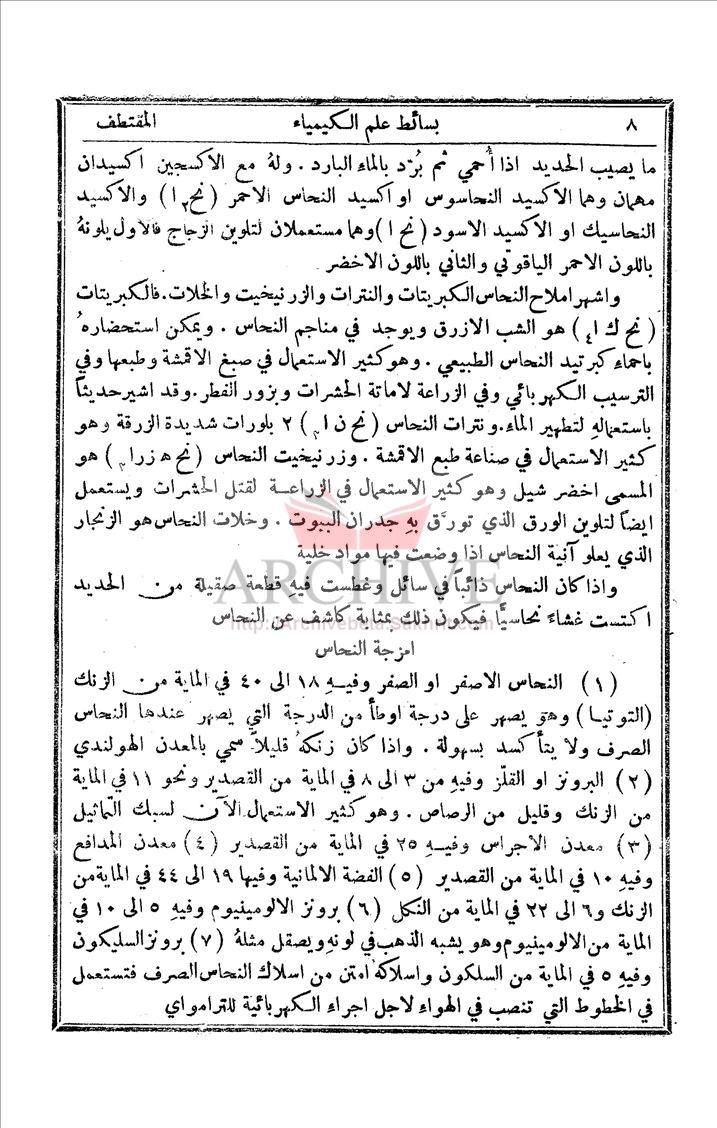 ٨ بسائط علم الكيمياء المقتطف
ما يصيب الحديد اذا أُحمي ثم بُرّد بالماء البارد . ولهُ مع الاكسجين اكسيدان
مهمان وهما الاكسيد النحاسوس او اكسيد النحاس الاحمر (نح٢ ا) والاكسيد
النحاسيك او الاكسيد الاسود (نح ا) وهما مستعملان لتلوين الزجاج فالاول يلونهُ
باللون الاحمر الياقوتي والثاني باللون الاخضر
واشهر املاح النحاس الكبريتات والنترات والزرنيخيت والخلات. فالكبريتات
(نح ك ا٤) هو الشب الازرق ويوجد في مناجم النحاس . ويمكن استحضارهُ
باحماء كبرتيد النحاس الطبيعي . وهو كثير الاستعمال في صبغ الاقمشة وطبعها وفي
الترسيب الكهربائي وفي الزراعة لاماتة الحشرات وبزور الفطر. وقد اشير حديثاً
باستعمالهِ لتطهير الماء. ونترات النحاس (نح ن ا٣) ٢ بلورات شديدة الزرقة وهو
كثير الاستعمال في صناعة طبع الاقمشة . وزرنيخيت النحاس (نح ه زر ا٣) هو
المسمى اخضر شيل وهو كثير الاستعمال في الزراعة لقتل الحشرات ويستعمل
ايضاً لتلوين الورق الذي تورَّق بهِ جدران البيوت . وخلات النحاس هو الزنجار
الذي يعلو آنية النحاس اذا وضعت فيها مواد خلية
ARCHIVE
واذا كان النحاس ذائباً في سائل وغطست فيهِ قطعة صقيلة من الحديد
اكتست غشاء نحاسيًّا فيكون ذلك بمثابة كاشف عن النحاس
http://Archivebeta.Sakhrit.com
امزجة النحاس
(١) النحاس الاصفر او الصفر وفيهِ ١٨ الى ٤٠ في الماية من الزنك
(التوتيا) وهو يصهر على درجة اوطأ من الدرجة التي يصهر عندها النحاس
الصرف ولا يتأكسد بسهولة . واذا كان زنكهُ قليلاً سمي بالمعدن الهولندي
(٢) البرونز او القلّز وفيهِ من ٣ الى ٨ في الماية من القصدير ونحو ١١ في الماية
من الزنك وقليل من الرصاص . وهو كثير الاستعمال الآن لسبك التماثيل
(٣) معدن الاجراس وفيهِ ٢٥ في الماية من القصدير (٤) معدن المدافع
وفيهِ ١٠ في الماية من القصدير (٥) الفضة الالمانية وفيها ١٩ الى ٤٤ في الماية من
الزنك و٦ الى ٢٢ في الماية من النكل (٦) برونز الالومينيوم وفيهِ ٥ الى ١٠ في
الماية من الالومينيوم وهو يشبه الذهب في لونهِ ويصقل مثلهُ (٧) برونز السليكون
وفيهِ ٥ في الماية من السلكون واسلاكهُ امتن من اسلاك النحاس الصرف فتستعمل
في الخطوط التي تنصب في الهواء لاجل اجراء الكهربائية للترامواي